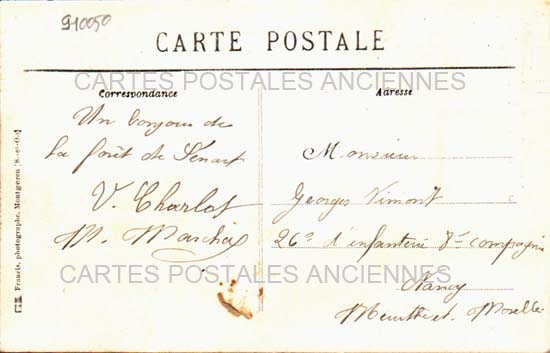 910050
CARTE POSTALE
CARTES POSTALES ANCIENNES
Correspondance
Adresse
Un bonjour de
la forêt de Sénart
V. Charlot
M.
Monsieur
Georges Vimont
26e d'infanterie 8e compagnie
Nancy
Meurthe et Moselle
CARTES POSTALES ANCIENNES
Francis, photographe, Montgeron [S.-et-O.]